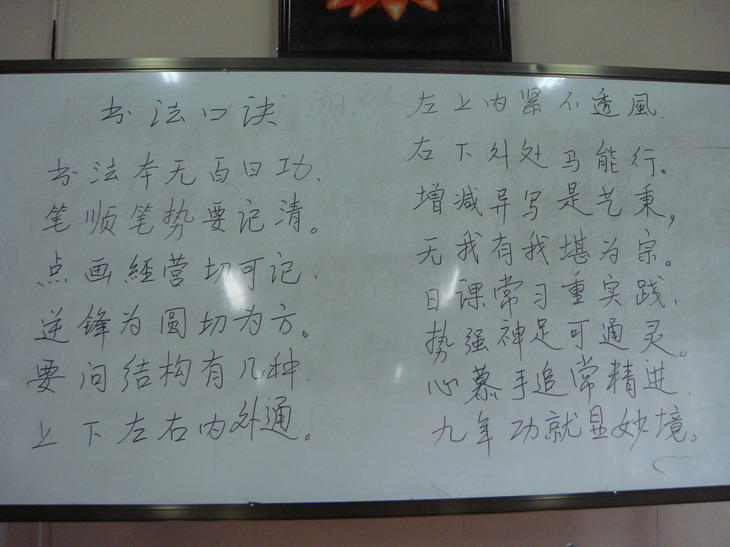 书法口诀
书法本无百日功、
笔顺笔势要记清。
点画經营切可记、
逆锋为圆切为方。
要问结构有几种、
上下左右内外通。
左上内紧不透風、
右下外处马能行。
增减异写是艺秉,
无我有我堪为宗。
日课常习重实践、
势强神足可通灵。
心慕手追常精进、
九年功就显妙境。